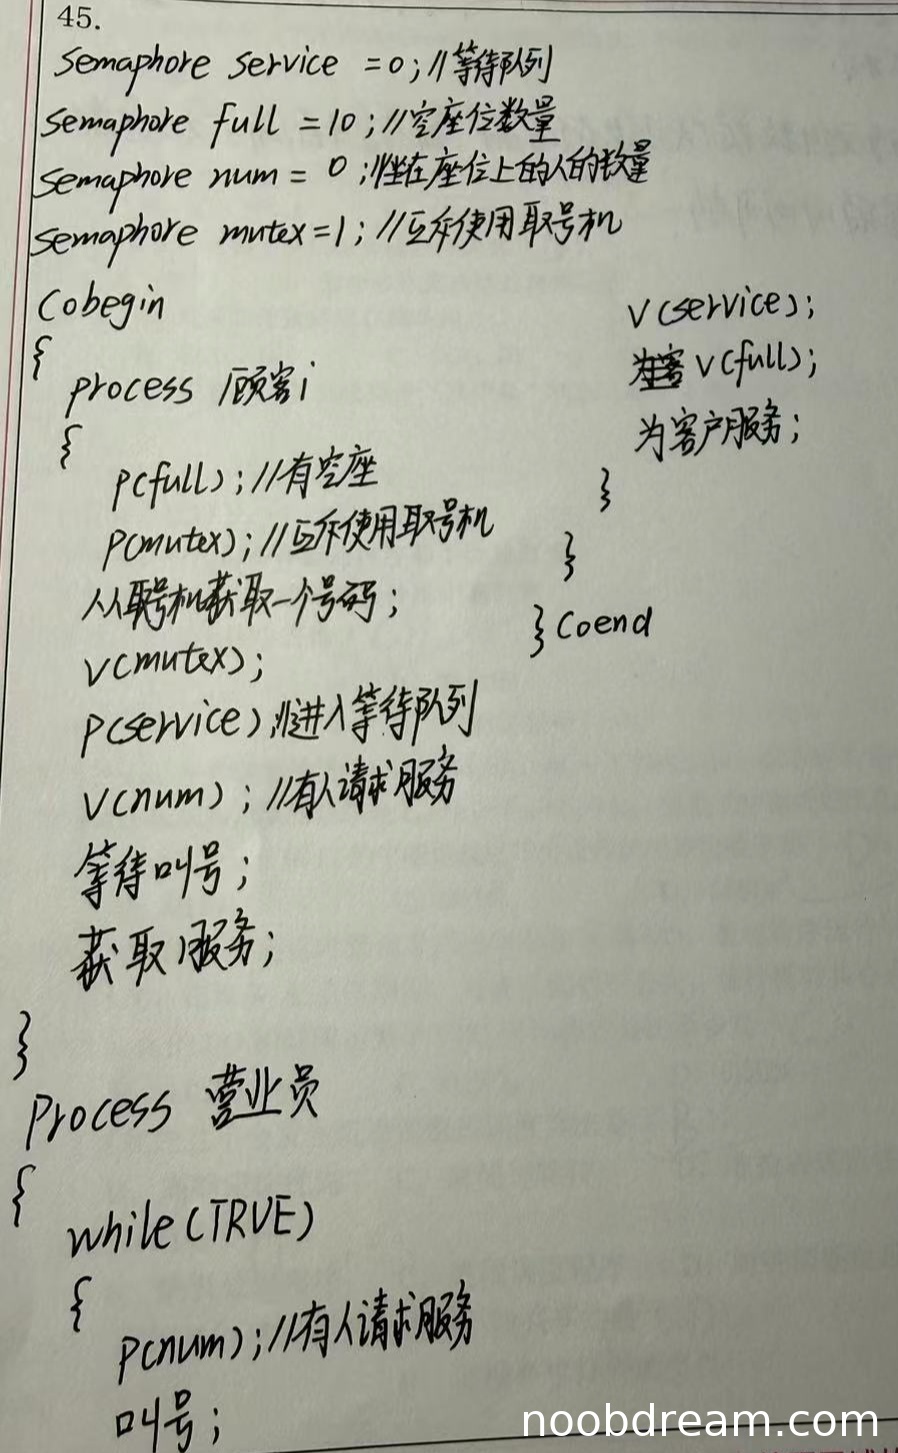 45.
semaphore service = 0; //等待队列
semaphore full = 10; //空座位数量
semaphore num = 0; //坐在座位上的人的数量
semaphore mutex=1; //互斥使用取号机
Cobegin
{
process 顾客i
{
P(full); //有空座
P(mutex); //互斥使用取号机
从取号机获取一个号码;
V(mutex);
P(service); //进入等待队列
V(num); //有人请求服务
等待叫号;
获取服务;
}
process 营业员
{
while(TRUE)
{
P(num); //有人请求服务
叫号;
V(service);
V(full);
为客户服务;
}
}
}Coend
noobdream.com